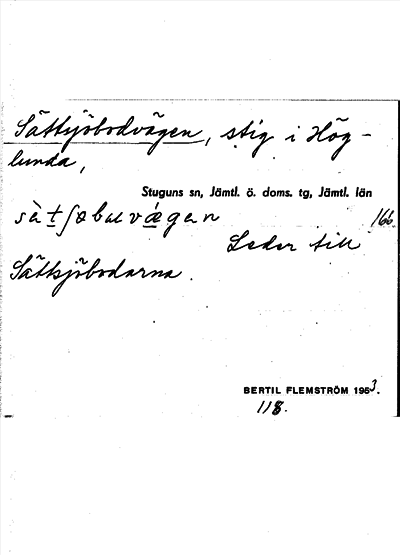 Sättsjöbodvägen, stig i Hög-
lunda,
Stuguns sn, Jämtl. ö. doms. tg, Jämtl. län
166.
Leder till
Sättsjöbodarna.
BERTIL FLEMSTRÖM 1953.
118.